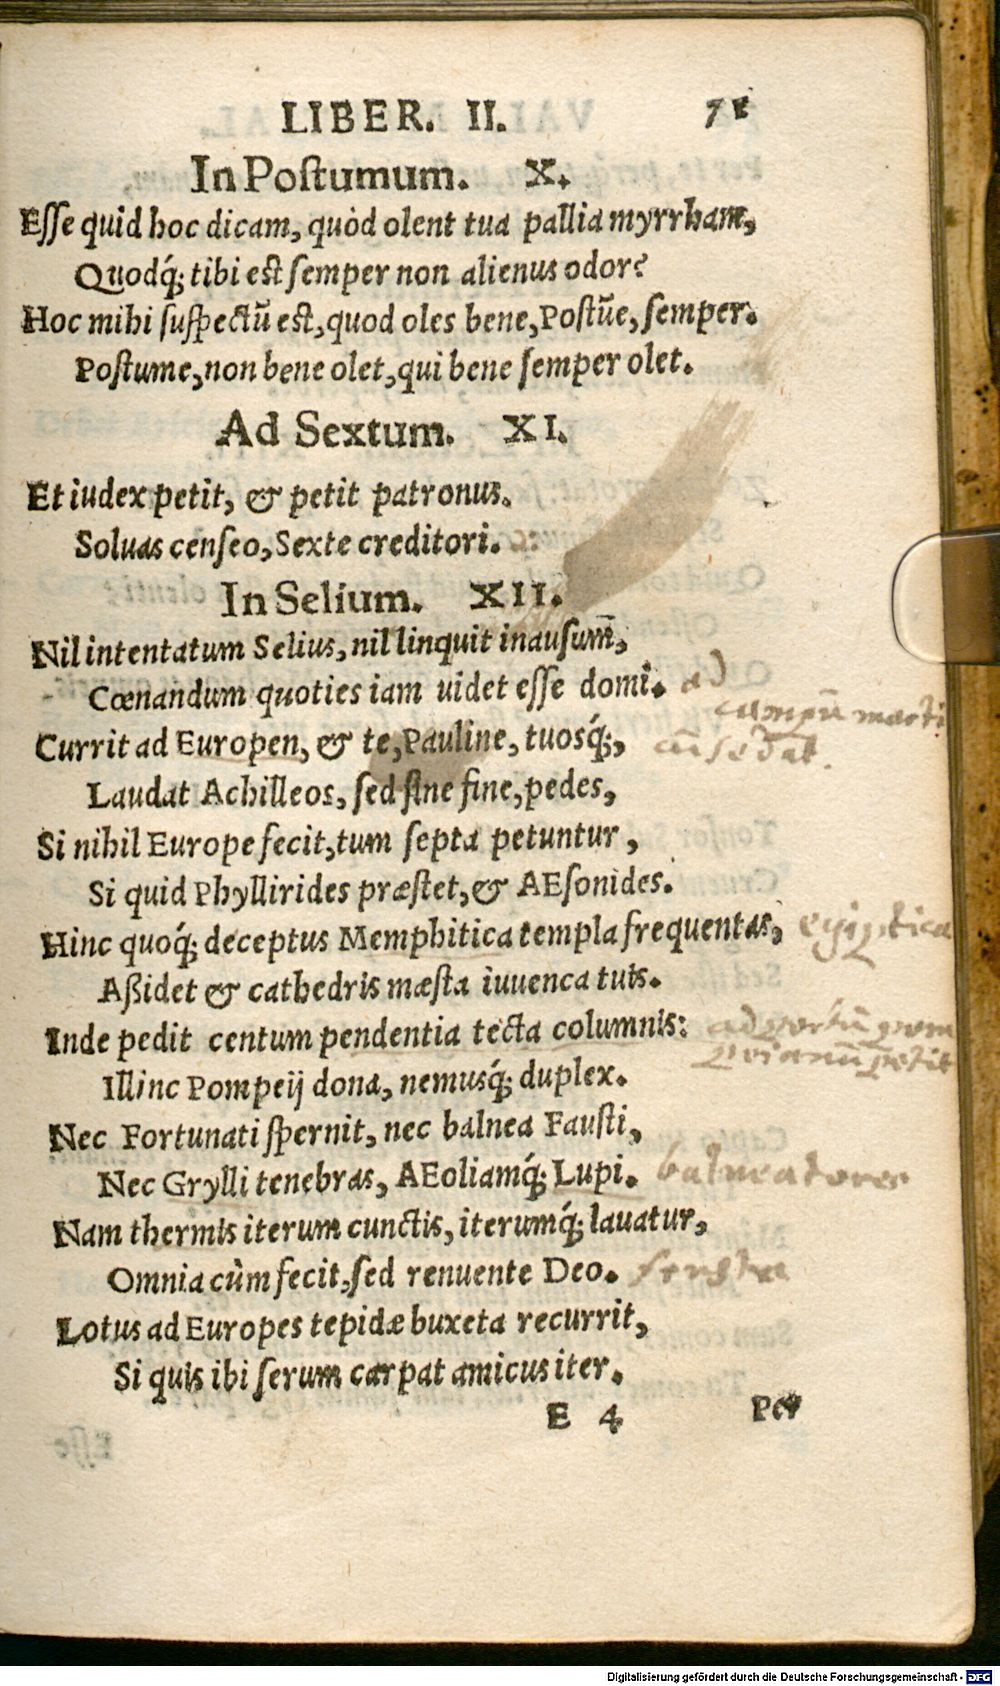 LIBER. II. 71
In Postumum. X.
Esse quid hoc dicam, quòd olent tua pallia myrrham,
Quodq́; tibi est semper non alienus odor?
Hoc mihi suspectũ est, quod oles bene, Postũe, semper.
Postume, non bene olet, qui bene semper olet.
Ad Sextum. XI.
Et iudex petit, & petit patronus.
Soluas censeo, Sexte creditori.
In Selium. XII.
Nil intentatum Selius, nil linquit inausum̃,
Cœnandum quoties iam uidet esse domi. ad
campũ marti
Currit ad Europen, & te, Pauline, tuosq́;,
Laudat Achilleos, sed sine fine, pedes,
Si nihil Europe fecit, tum septa petuntur,
Si quid Phyllirides præstet, & AEsonides.
Hinc quoq́; deceptus Memphitica templa frequentas, egiptica
Aßidet & cathedris mæsta iuuenca tuis.
Inde pedit centum pendentia tecta columnis: ad portũ pom
peianũ petit
Illinc Pompeij dona, nemusq́; duplex.
Nec Fortunati spernit, nec balnea Fausti,
Nec Grylli tenebras, AEoliamq́; Lupi. balneatores
Nam thermis iterum cunctis, iterumq́; lauatur,
Omnia cùm fecit, sed renuente Deo.
Lotus ad Europes tepidæ buxeta recurrit,
Si quis ibi serum carpat amicus iter.
E 4 Per
Digitalisierung gefördert durch die Deutsche Forschungsgemeinschaft - DFG